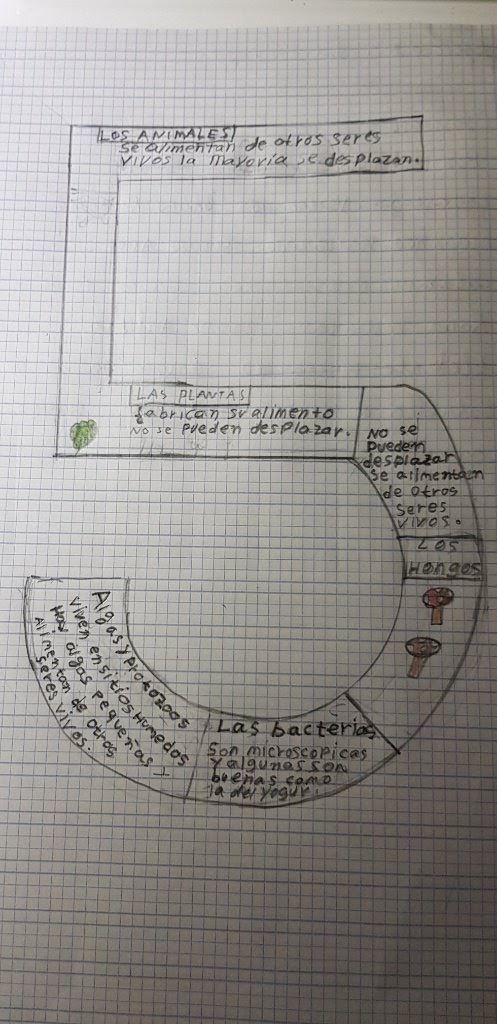 LOS ANIMALES
se alimentan de otros seres
vivos la mayoria se desplazan.
LAS PLANTAS
fabrican su alimento
NO se pueden desplazar.
NO se
pueden
desplazar
se alimentan
de otros
seres
vivos.
LOS
Hongos
Las bacterias
Son microscopicas
y algunas son
buenas como
la del yogur.
Algas y protozoos
viven en sitios Humedos
Hay algas pequeñas y
Alimentan de otros
seres vivos.